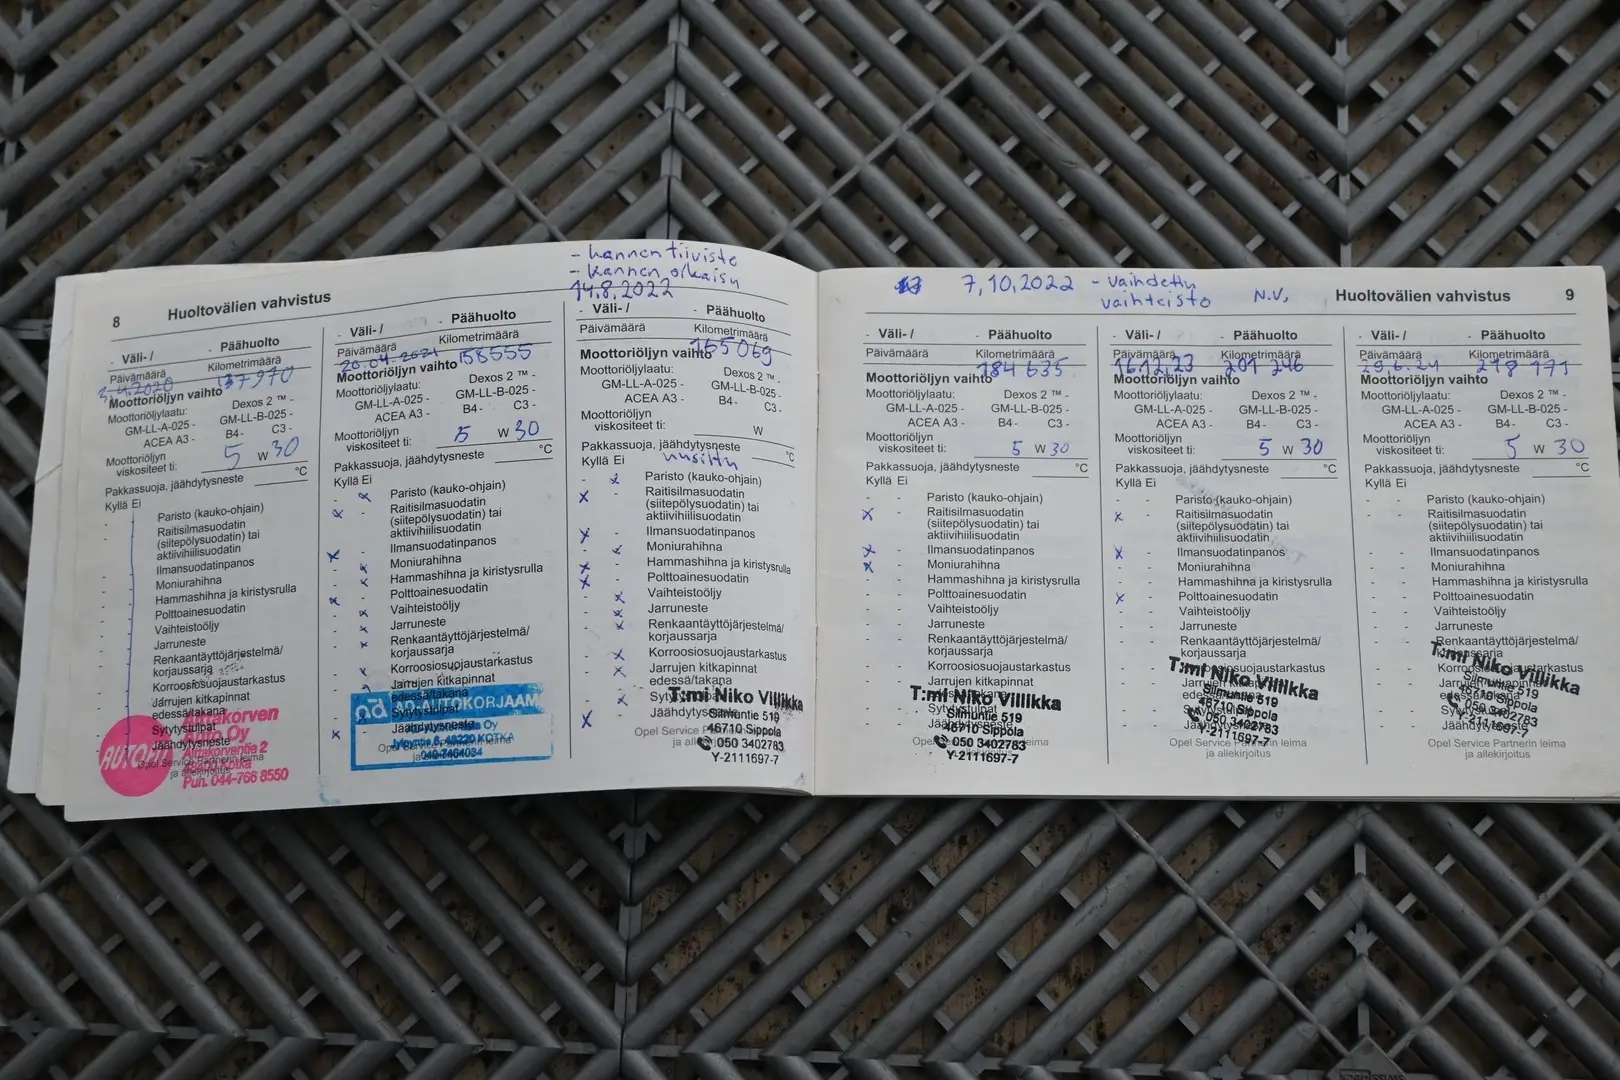 8
Huoltovälien vahvistus
- Väli- /
- Päähuolto
Päivämäärä
Kilometrimäärä
3.4.2020
137970
Moottoriöljyn vaihto
Moottoriöljylaatu:
Dexos 2 ™ -
GM-LL-A-025 -
GM-LL-B-025 -
ACEA A3 -
B4 -
C3 -
Moottoriöljyn
viskositeet ti:
5 W 30
Pakkassuoja, jäähdytysneste
°C
Kyllä Ei
Paristo (kauko-ohjain)
Raitisilmasuodatin
(siitepölysuodatin) tai
aktiivihiilisuodatin
Ilmansuodatinpanos
Moniurahihna
Hammashihna ja kiristysrulla
Polttoainesuodatin
Vaihteistoöljy
Jarruneste
Renkaantäyttöjärjestelmä/
korjaussarja
Korroosiosuojaustarkastus
Jarrujen kitkapinnat
edessä/takana
Sytytystulpat
Jäähdytysneste
Opel Service Partnerin leima
ja allekirjoitus
Auto Oy
Puh. 044-766 8550
- Väli- /
- Päähuolto
Päivämäärä
Kilometrimäärä
20.04.2021
158555
Moottoriöljyn vaihto
Moottoriöljylaatu:
Dexos 2 ™ -
GM-LL-A-025 -
GM-LL-B-025 -
ACEA A3 -
B4 -
C3 -
Moottoriöljyn
viskositeet ti:
5 W 30
Pakkassuoja, jäähdytysneste
°C
Kyllä Ei
Paristo (kauko-ohjain)
Raitisilmasuodatin
(siitepölysuodatin) tai
aktiivihiilisuodatin
Ilmansuodatinpanos
Moniurahihna
Hammashihna ja kiristysrulla
Polttoainesuodatin
Vaihteistoöljy
Jarruneste
Renkaantäyttöjärjestelmä/
korjaussarja
Korroosiosuojaustarkastus
Jarrujen kitkapinnat
edessä/takana
Sytytystulpat
Jäähdytysneste
ad AD-AUTOKORJAAM
48220 KOTKA
- kannen tiiviste
- kannen oikaisu
14.8.2022
- Väli- /
- Päähuolto
Päivämäärä
Kilometrimäärä
165069
Moottoriöljyn vaihto
Moottoriöljylaatu:
Dexos 2 ™ -
GM-LL-A-025 -
GM-LL-B-025 -
ACEA A3 -
B4 -
C3 -
Moottoriöljyn
viskositeet ti:
W
Pakkassuoja, jäähdytysneste
°C
Kyllä Ei
uusittu
Paristo (kauko-ohjain)
Raitisilmasuodatin
(siitepölysuodatin) tai
aktiivihiilisuodatin
Ilmansuodatinpanos
Moniurahihna
Hammashihna ja kiristysrulla
Polttoainesuodatin
Vaihteistoöljy
Jarruneste
Renkaantäyttöjärjestelmä/
korjaussarja
Korroosiosuojaustarkastus
Jarrujen kitkapinnat
edessä/takana
Jäähdytysneste
Opel Service Partnerin leima
ja allekirjoitus
T:mi Niko Villikka
Silmuntie 519
46710 Sippola
050 3402783
Y-2111697-7
7,10,2022 - vaihdettu
vaihteisto
N.V,
Huoltovälien vahvistus
9
- Väli- /
- Päähuolto
Päivämäärä
Kilometrimäärä
184 635
Moottoriöljyn vaihto
Moottoriöljylaatu:
Dexos 2 ™ -
GM-LL-A-025 -
GM-LL-B-025 -
ACEA A3 -
B4 -
C3 -
Moottoriöljyn
viskositeet ti:
5 W 30
Pakkassuoja, jäähdytysneste
°C
Kyllä Ei
Paristo (kauko-ohjain)
Raitisilmasuodatin
(siitepölysuodatin) tai
aktiivihiilisuodatin
Ilmansuodatinpanos
Moniurahihna
Hammashihna ja kiristysrulla
Polttoainesuodatin
Vaihteistoöljy
Jarruneste
Renkaantäyttöjärjestelmä/
korjaussarja
Korroosiosuojaustarkastus
Jarrujen kitkapinnat
T:mi Niko Villikka
Silmuntie 519
46710 Sippola
050 3402783
Y-2111697-7
- Väli- /
- Päähuolto
Päivämäärä
Kilometrimäärä
16.12,23
201 246
Moottoriöljyn vaihto
Moottoriöljylaatu:
Dexos 2 ™ -
GM-LL-A-025 -
GM-LL-B-025 -
ACEA A3 -
B4 -
C3 -
Moottoriöljyn
viskositeet ti:
5 W 30
Pakkassuoja, jäähdytysneste
°C
Kyllä Ei
Paristo (kauko-ohjain)
Raitisilmasuodatin
(siitepölysuodatin) tai
aktiivihiilisuodatin
Ilmansuodatinpanos
Moniurahihna
Hammashihna ja kiristysrulla
Polttoainesuodatin
Vaihteistoöljy
Jarruneste
Renkaantäyttöjärjestelmä/
korjaussarja
T:mi Niko Villikka
Silmuntie 519
46710 Sippola
050 3402783
Y-2111697-7
Opel Service Partnerin leima
ja allekirjoitus
- Väli- /
- Päähuolto
Päivämäärä
Kilometrimäärä
29,6.24
218 171
Moottoriöljyn vaihto
Moottoriöljylaatu:
Dexos 2 ™ -
GM-LL-A-025 -
GM-LL-B-025 -
ACEA A3 -
B4 -
C3 -
Moottoriöljyn
viskositeet ti:
5 W 30
Pakkassuoja, jäähdytysneste
°C
Kyllä Ei
Paristo (kauko-ohjain)
Raitisilmasuodatin
(siitepölysuodatin) tai
aktiivihiilisuodatin
Ilmansuodatinpanos
Moniurahihna
Hammashihna ja kiristysrulla
Polttoainesuodatin
Vaihteistoöljy
Jarruneste
Renkaantäyttöjärjestelmä/
T:mi Niko Villikka
Silmuntie 519
46710 Sippola
050 3402783
Y-2111697-7
Opel Service Partnerin leima
ja allekirjoitus